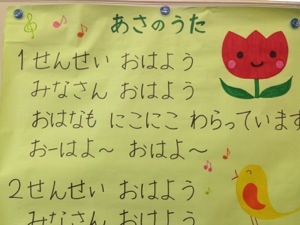 あさのうた
1 せんせい おはよう
みなさん おはよう
おはなも にこにこ わらっています
おーはよ～ おはよ～
2 せんせい おはよう
みなさん おはよう